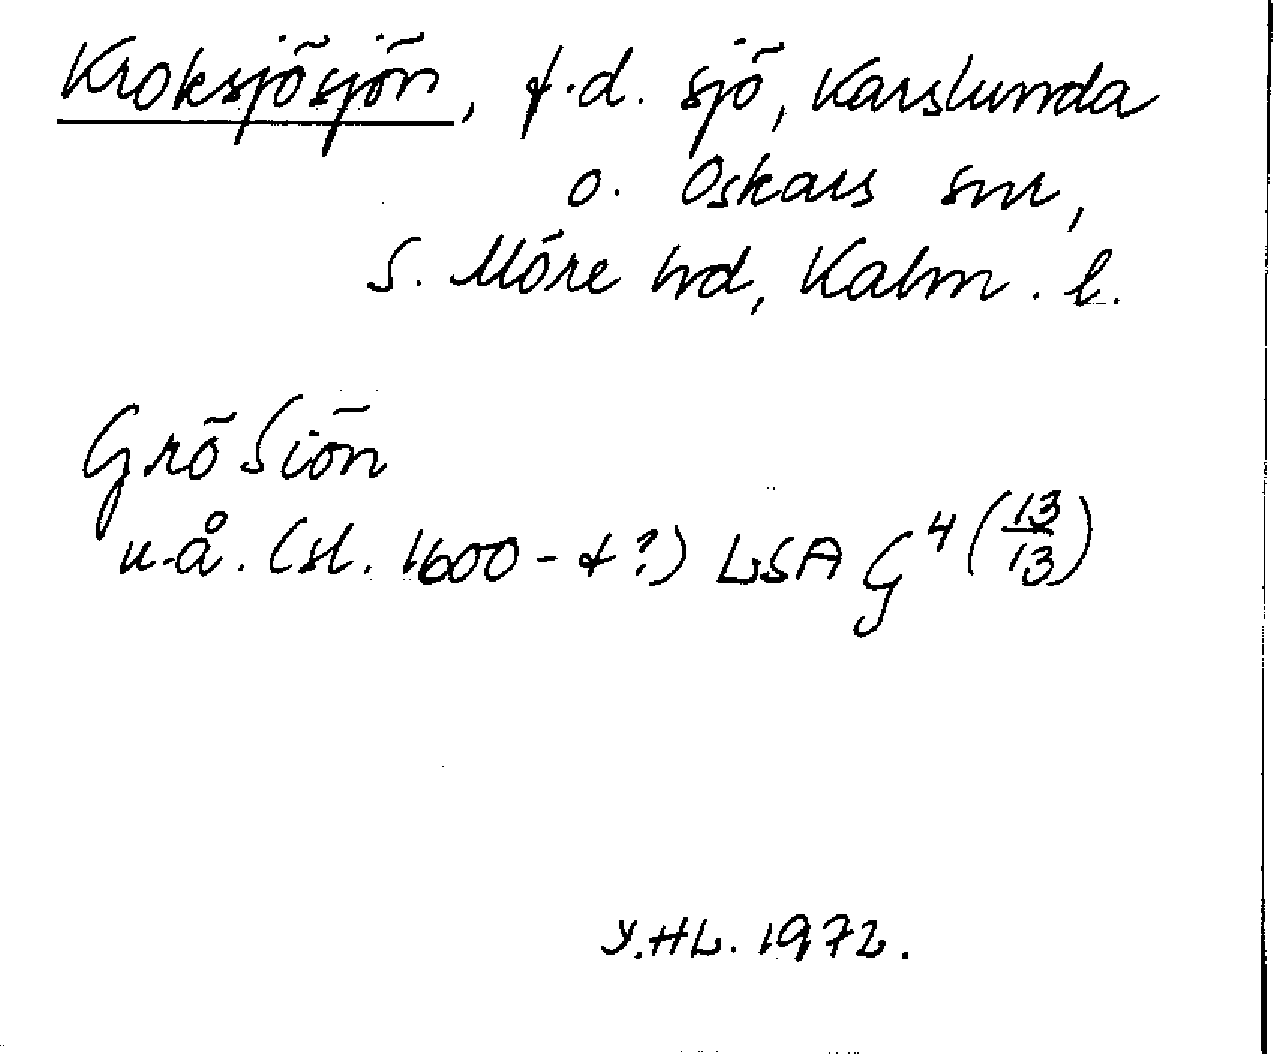 Kroksjösjön, f.d. sjö, Karslunda
o. Oskars snr,
S. Möre hd, Kalm. l.
Grö Siön
u.å. (sl. 1600-t?) LSA G⁴ (13/13)
Y.HL. 1972.